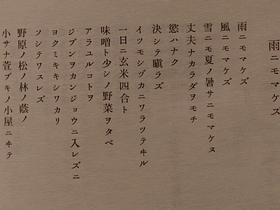 雨ニモマケズ
雨ニモマケズ
風ニモマケズ
雪ニモ夏ノ暑サニモマケヌ
丈夫ナカラダヲモチ
慾ハナク
決シテ瞋ラズ
イツモシヅカニワラッテヰル
一日ニ玄米四合ト
味噌ト少シノ野菜ヲタベ
アラユルコトヲ
ジブンヲカンジョウニ入レズニ
ヨクミキキシワカリ
ソシテワスレズ
野原ノ松ノ林ノ蔭ノ
小サナ萱ブキノ小屋ニヰテ